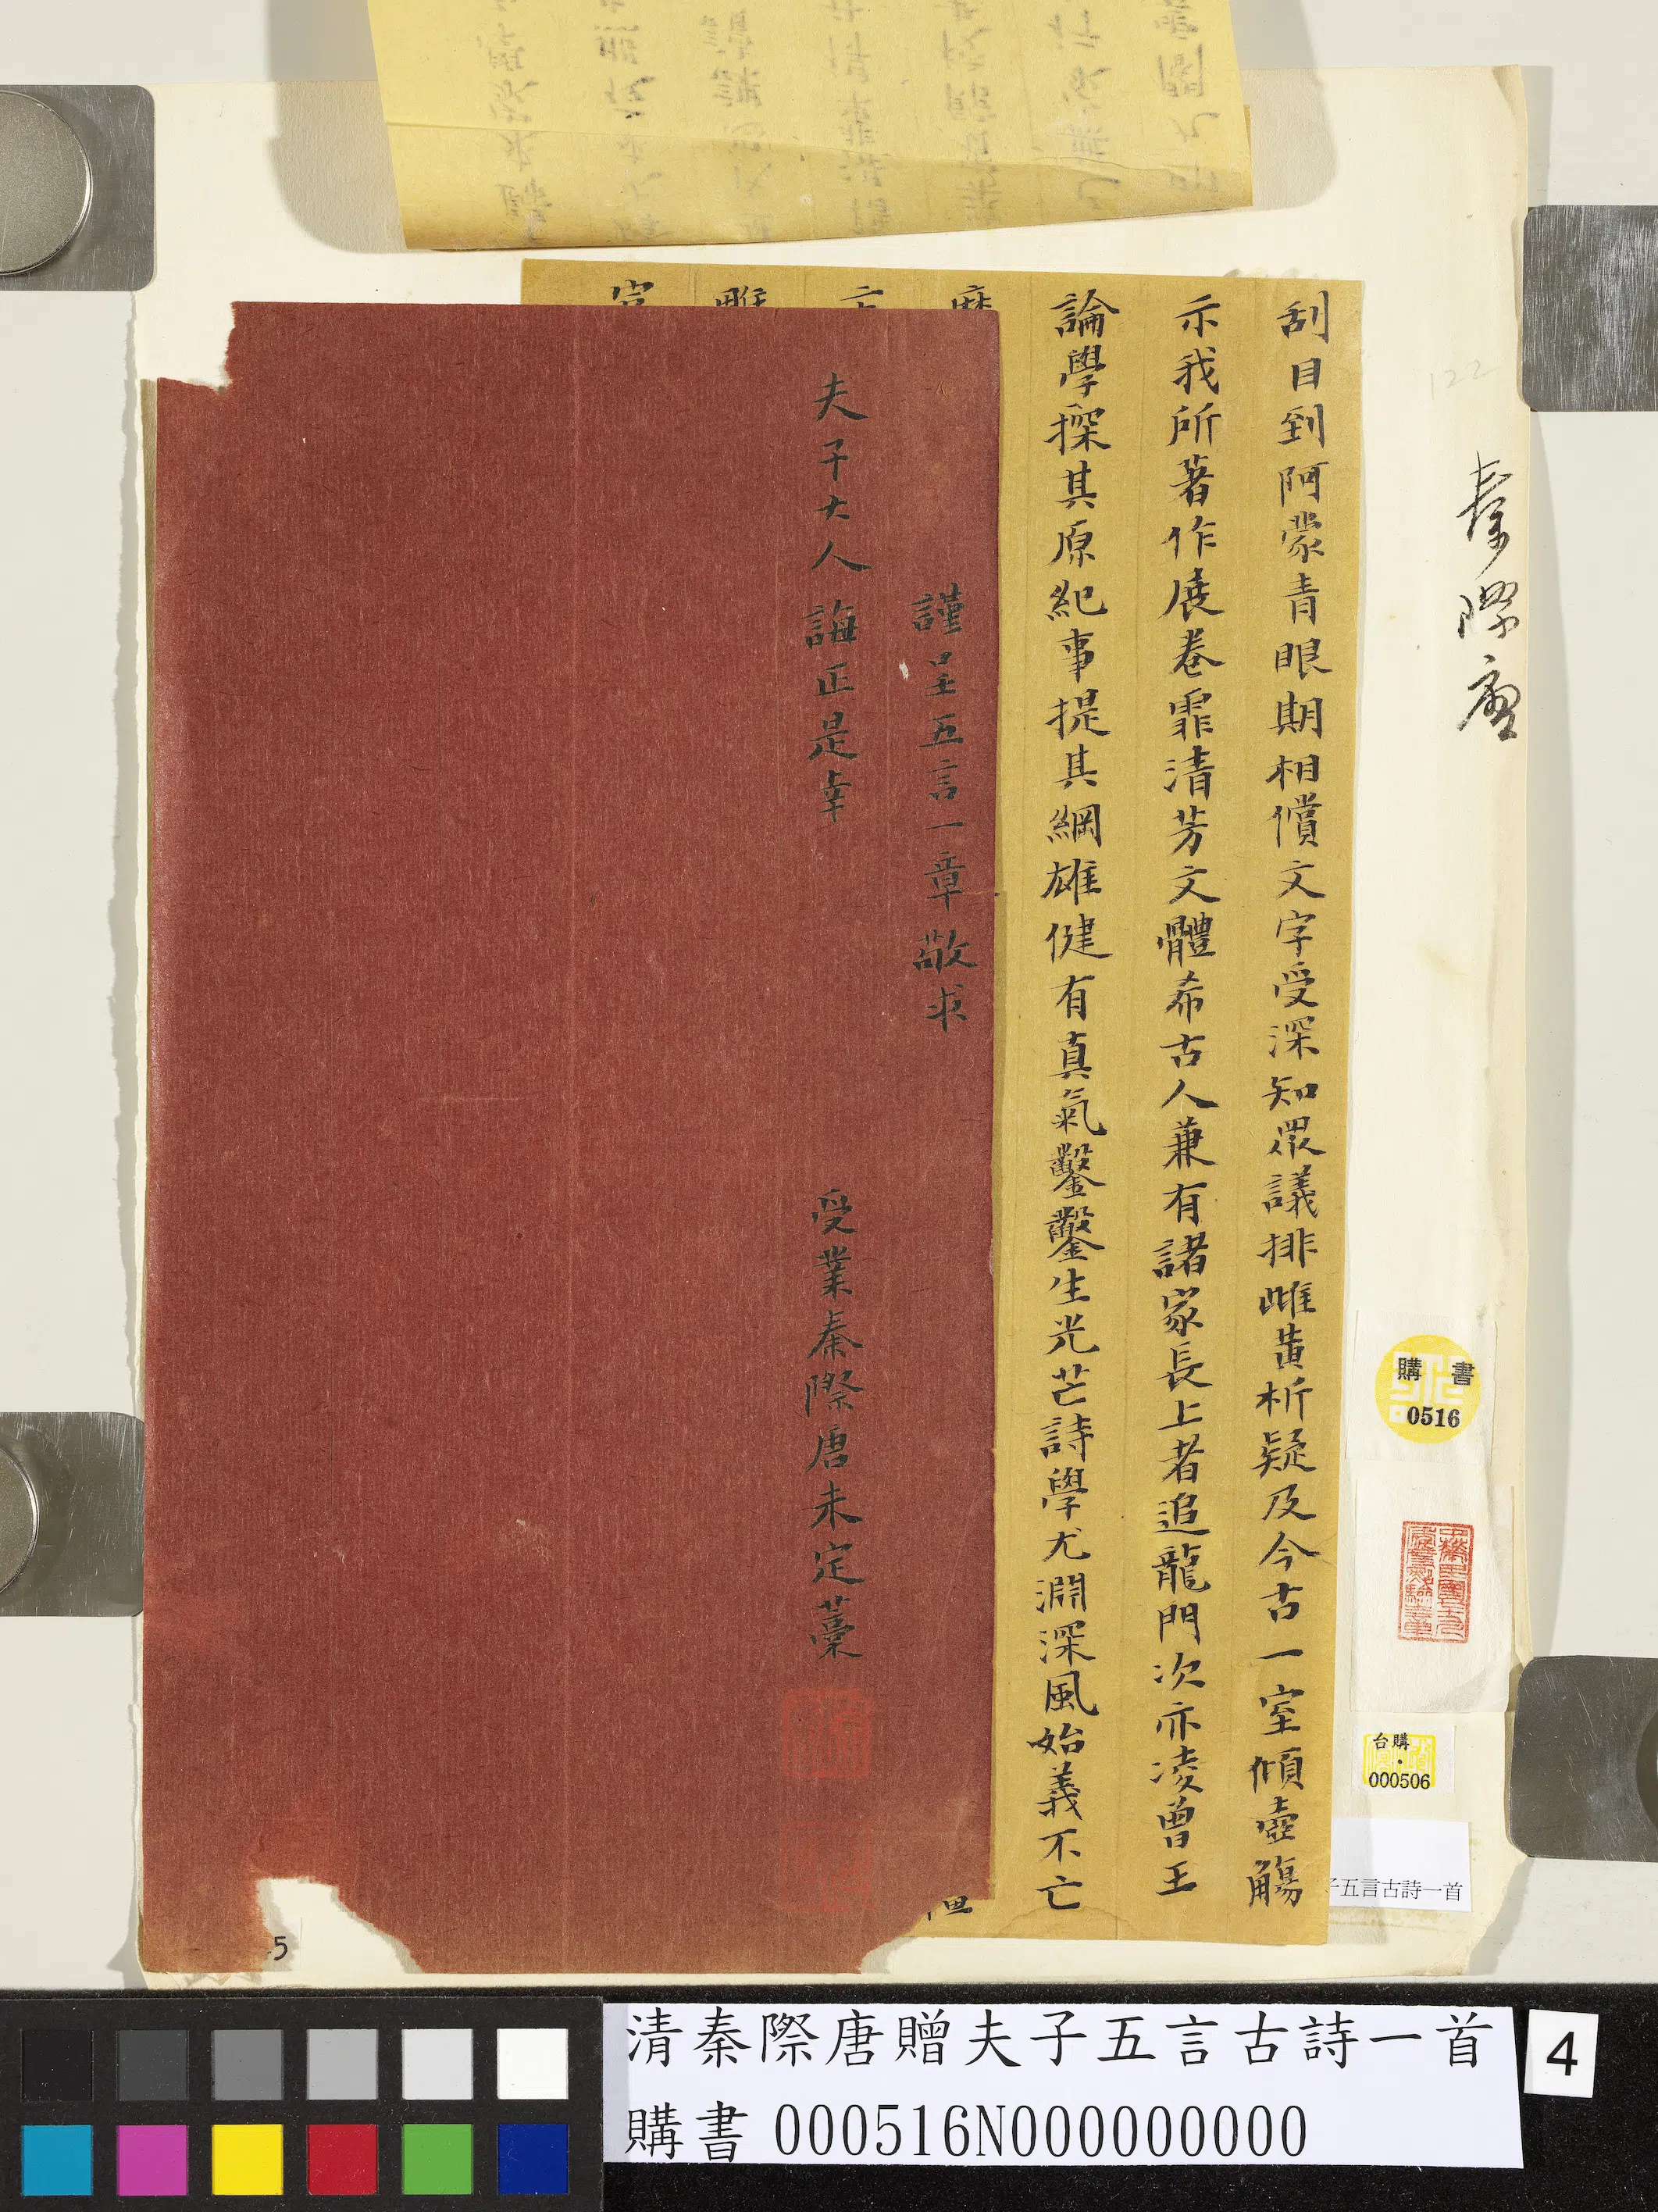 秦際唐
122
刮目到阿蒙青眼期相償文字受深知眾議排雌黃析疑及今古一室傾壺觴
示我所著作展卷霏清芳文體希古人兼有諸家長上者追龍門次亦凌曾王
論學探其原紀事提其綱雄健有真氣鑿鑿生光芒詩學尤淵深風始義不亡
謹呈五言一章敬求
夫子大人誨正是幸
受業秦際唐未定藁
購書
0516
台購
000506
子五言古詩一首
5
清秦際唐贈夫子五言古詩一首
購書000516N000000000
4